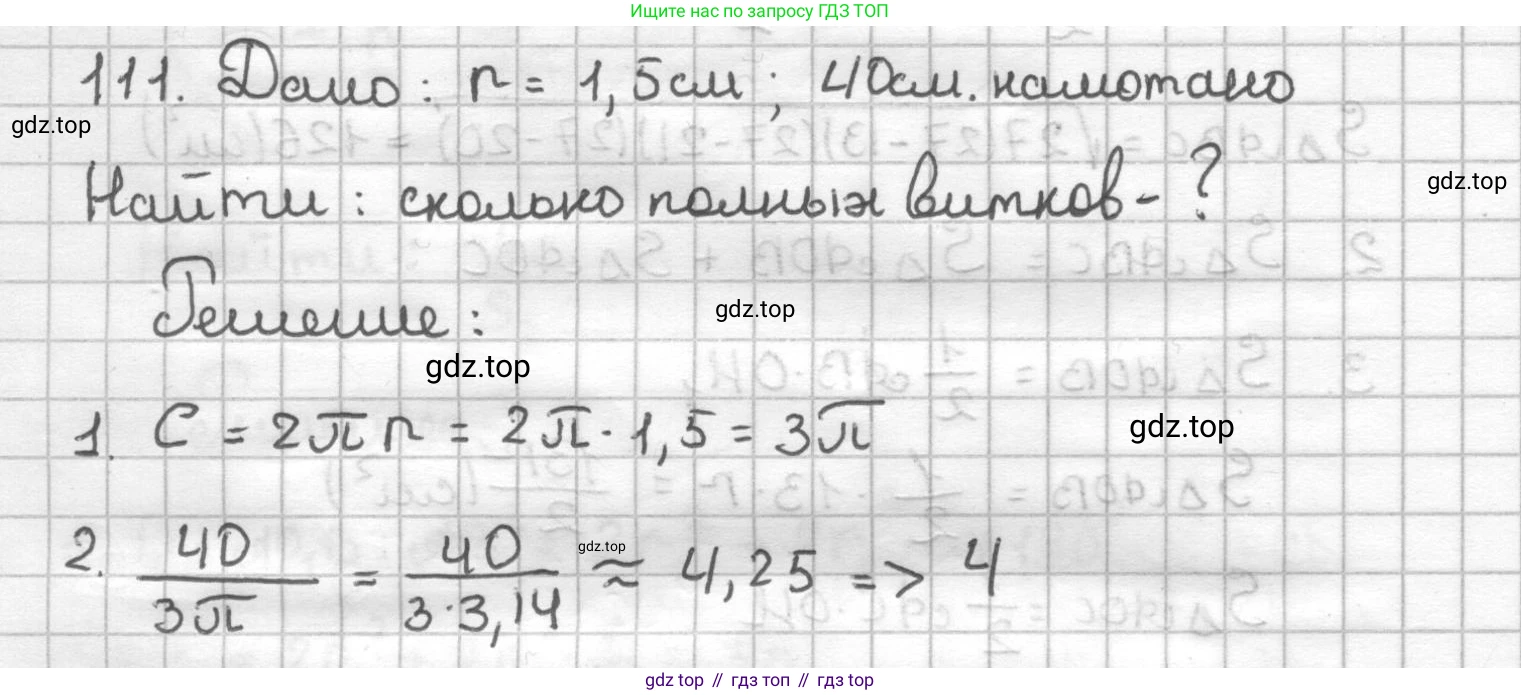 Ищите нас по запросу ГДЗ ТОП
111. Дано: r = 1,5см; 40см. намотано
gdz.top
Найти: сколько полных витков - ?
gdz.top
Решение:
gdz.top
gdz.top
1. C = 2πr = 2π · 1,5 = 3π
gdz.top
2. 40/3π = 40/3·3,14 ≈ 4,25 => 4
gdz.top
gdz top // гдз топ // gdz top